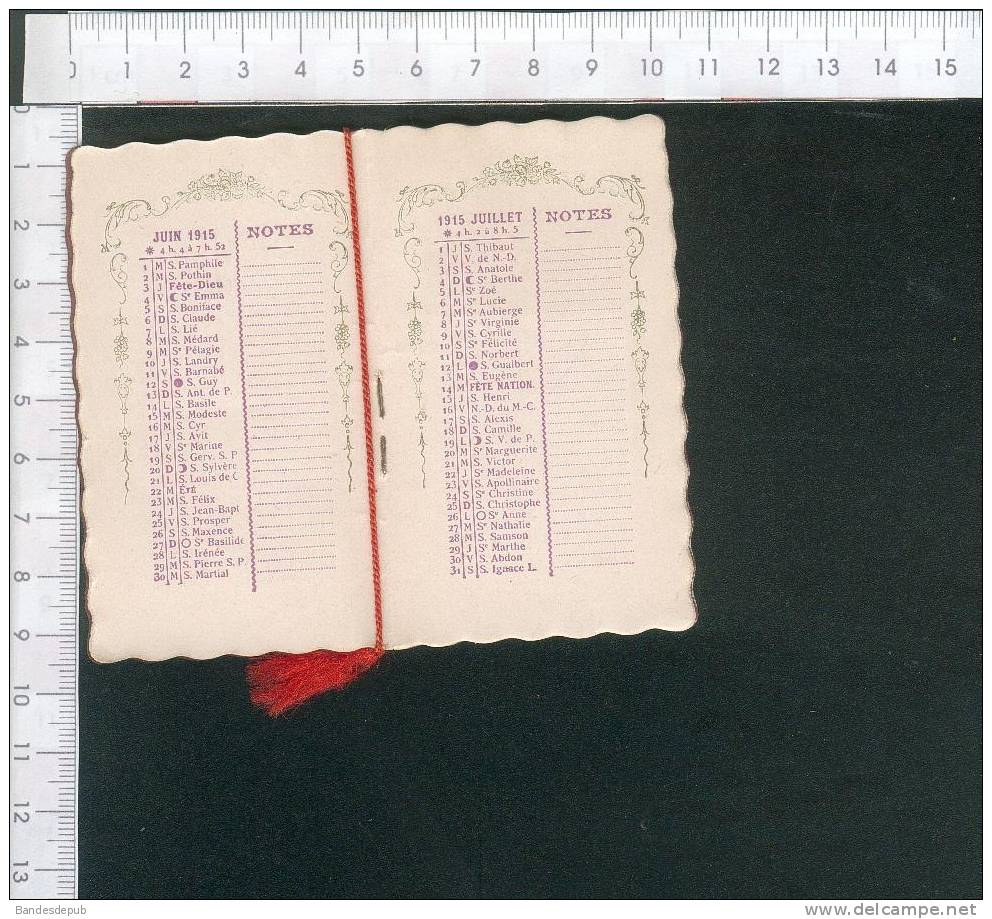 0 1 2 3 4 5 6 7 8 9 10 11 12 13 14 15
0
1
2
3
4
5
6
7
8
9
10
11
12
13
JUIN 1915
4 h. 4 à 7 h. 52
NOTES
1 M S. Pamphile
2 M S. Pothin
3 J Fête-Dieu
4 V Sᵉ Emma
5 S S. Boniface
6 D S. Claude
7 L S. Lié
8 M S. Médard
9 M Sᵉ Pélagie
10 J S. Landry
11 V S. Barnabé
12 S S. Guy
13 D S. Ant. de P.
14 L S. Basile
15 M S. Modeste
16 M S. Cyr
17 J S. Avit
18 V Sᵉ Marine
19 S S. Gerv. S. P
20 D S. Sylvère
21 L S. Louis de G
22 M Été
23 M S. Félix
24 J S. Jean-Bapt
25 V S. Prosper
26 S S. Maxence
27 D Sᵉ Basilide
28 L S. Irénée
29 M S. Pierre S. P.
30 M S. Martial
1915 JUILLET
4 h. 2 à 8 h. 5
NOTES
1 J S. Thibaut
2 V V. de N.-D.
3 S S. Anatole
4 D Sᵉ Berthe
5 L Sᵉ Zoé
6 M Sᵉ Lucie
7 M Sᵉ Aubierge
8 J Sᵉ Virginie
9 V S. Cyrille
10 S Sᵉ Félicité
11 D S. Norbert
12 L S. Gualbert
13 M S. Eugène
14 M FÊTE NATION.
15 J S. Henri
16 V N.-D. du M.-C.
17 S S. Alexis
18 D S. Camille
19 L S. V. de P.
20 M Sᵉ Marguerite
21 M S. Victor
22 J Sᵉ Madeleine
23 V S. Apollinaire
24 S Sᵉ Christine
25 D S. Christophe
26 L Sᵉ Anne
27 M Sᵉ Nathalie
28 M S. Samson
29 J Sᵉ Marthe
30 V S. Abdon
31 S S. Ignace L.
Bandesdepub
www.delcampe.net